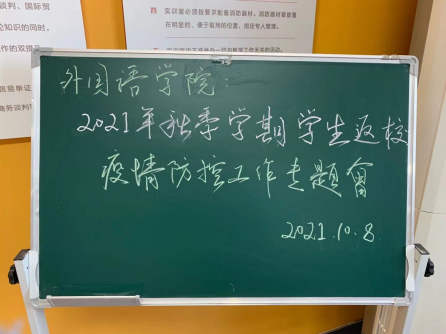 谈判、国际贸
论知识的同时，
作的双提
贸易单证
商务谈判
四、实训室必须按要求配备消防器材。消防器材要放置
在明显的、便于取用的位置，指定专人管理。
外国语学院：
2021年秋季学期学生返校
疫情防控工作专题會
2021.10.8